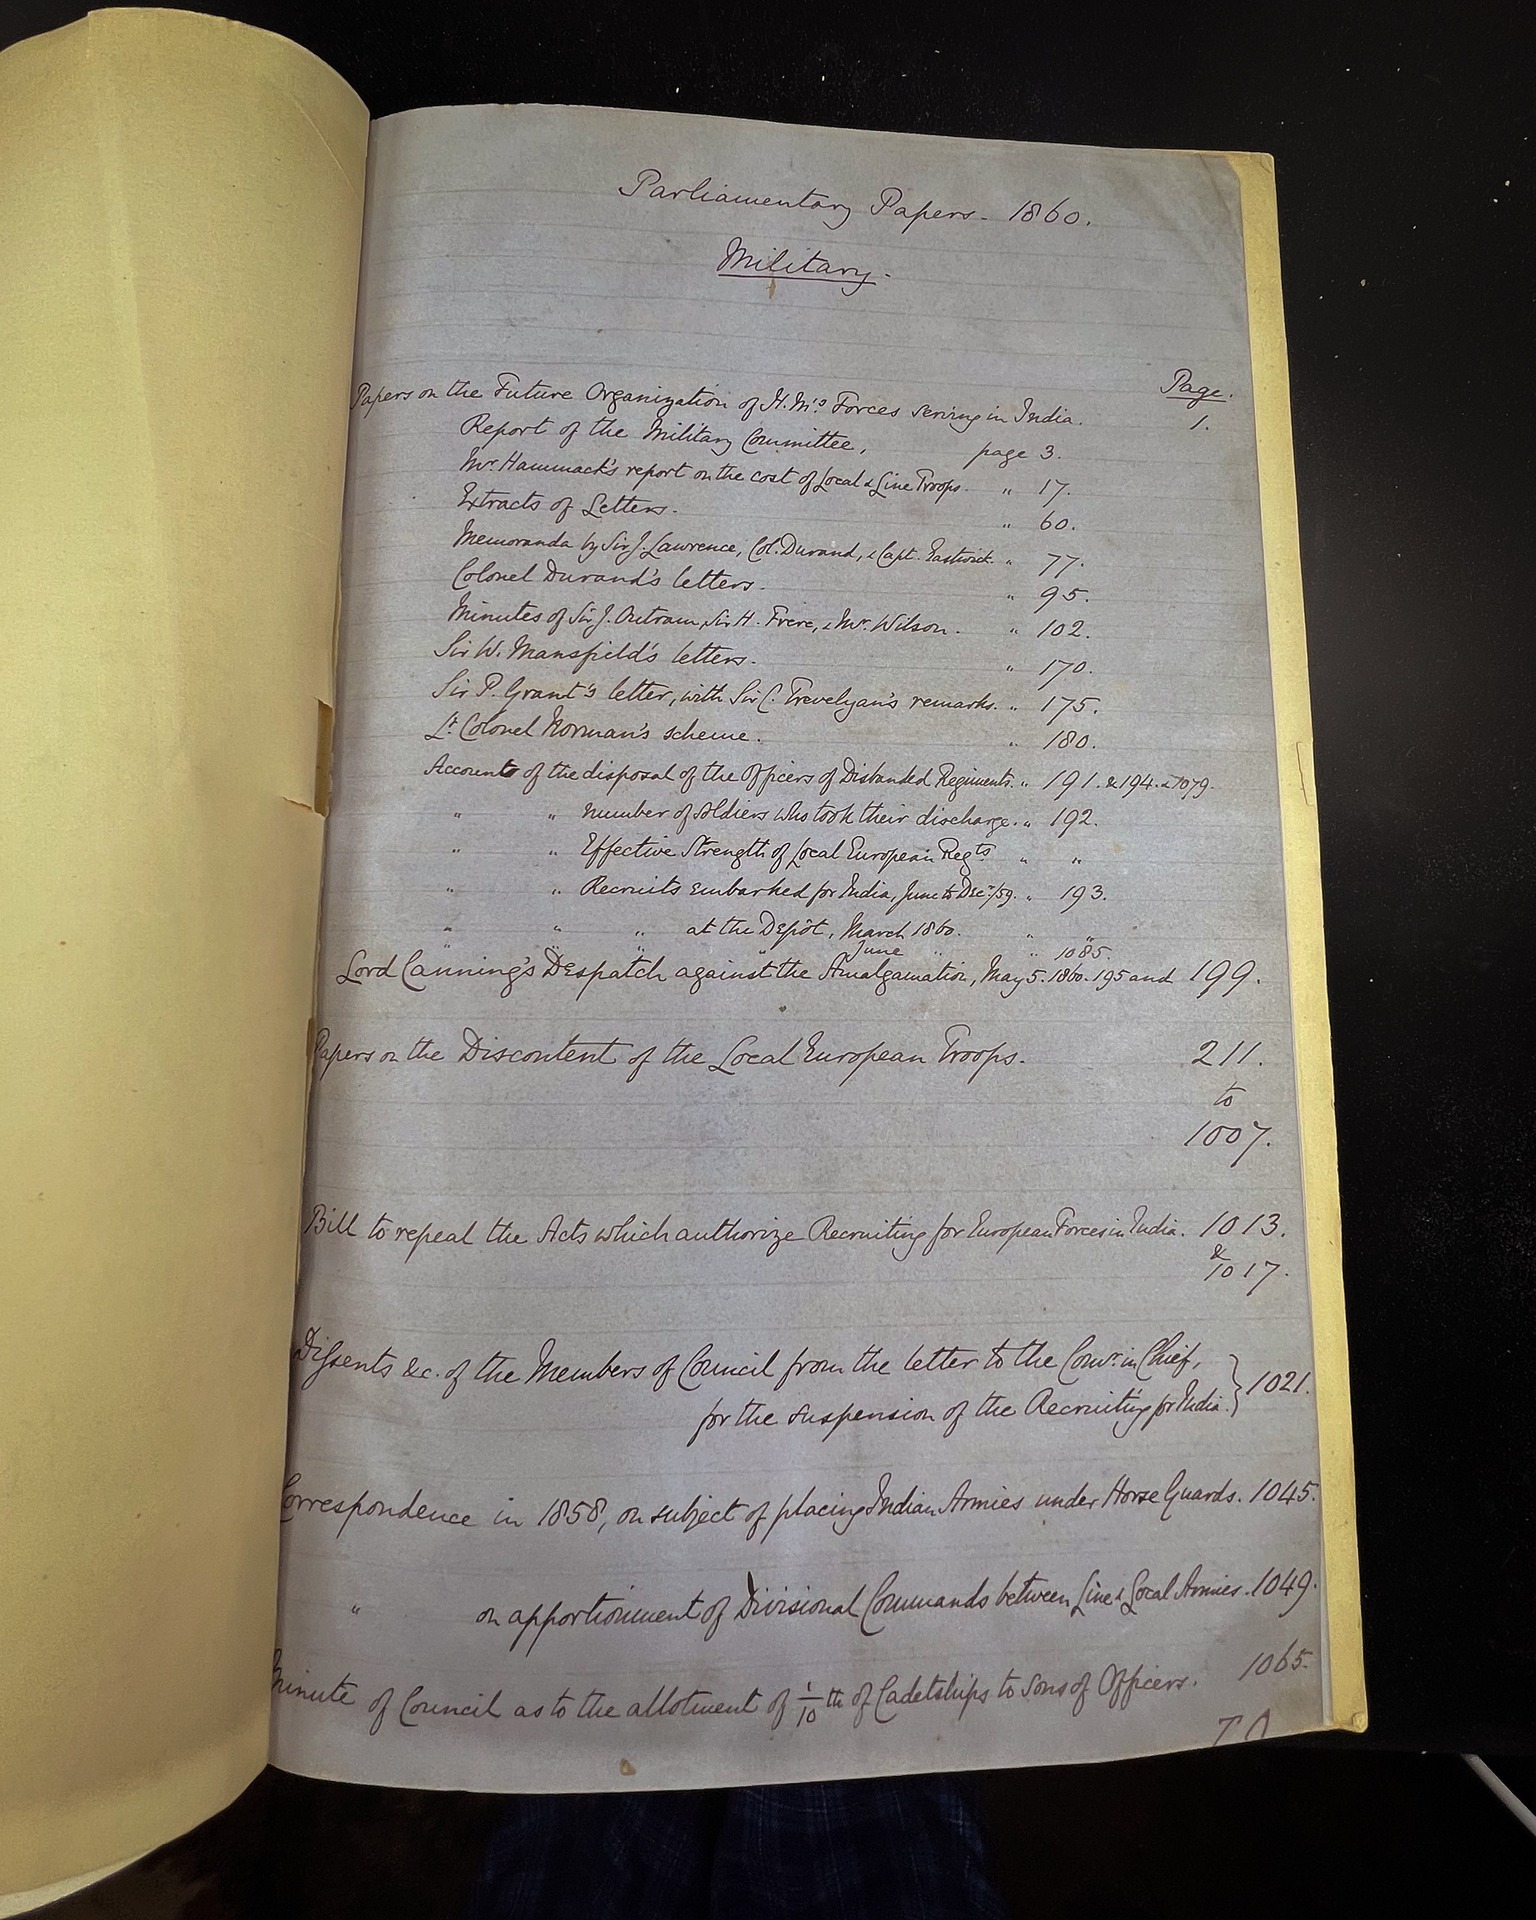 Parliamentary Papers - 1860.
Military.
Page.
Papers on the Future Organization of H.M's Forces serving in India. 1.
Report of the Military Committee, page 3.
Mr. Hammack's report on the cost of Local & Line Troops. " 17.
Extracts of Letters. " 60.
Memoranda by Sir J. Lawrence, Col. Durand, & Capt. Eastwick. " 77.
Colonel Durand's letters. " 95.
Minutes of Sir J. Outram, Sir H. Frere, & Mr. Wilson. " 102.
Sir W. Mansfield's letters. " 170.
Sir P. Grant's letter, with Sir C. Trevelyan's remarks. " 175.
Lt. Colonel Norman's scheme. " 180.
Accounts of the disposal of the Officers of Disbanded Regiments. " 191. & 194. & 1079.
" " number of soldiers who took their discharge. " 192.
" " Effective Strength of Local European Regts " "
" " Recruits embarked for India, June to Decr/59. " 193.
" " " at the Depôt, March 1860. " "
" " " " June " " 1085.
Lord Canning's Despatch against the Amalgamation, May 5. 1860. 195 and 199.
Papers on the Discontent of the Local European Troops. 211.
to
1007.
Bill to repeal the Acts which authorize Recruiting for European Forces in India. 1013.
&
1017.
Dissents &c. of the Members of Council from the letter to the Comr. in Chief,
for the suspension of the Recruiting for India. } 1021.
Correspondence in 1858, on subject of placing Indian Armies under Horse Guards. 1045.
" on apportionment of Divisional Commands between Line & Local Armies. 1049.
Minute of Council as to the allotment of 1/10 th of Cadetships to Sons of Officers. 1065.